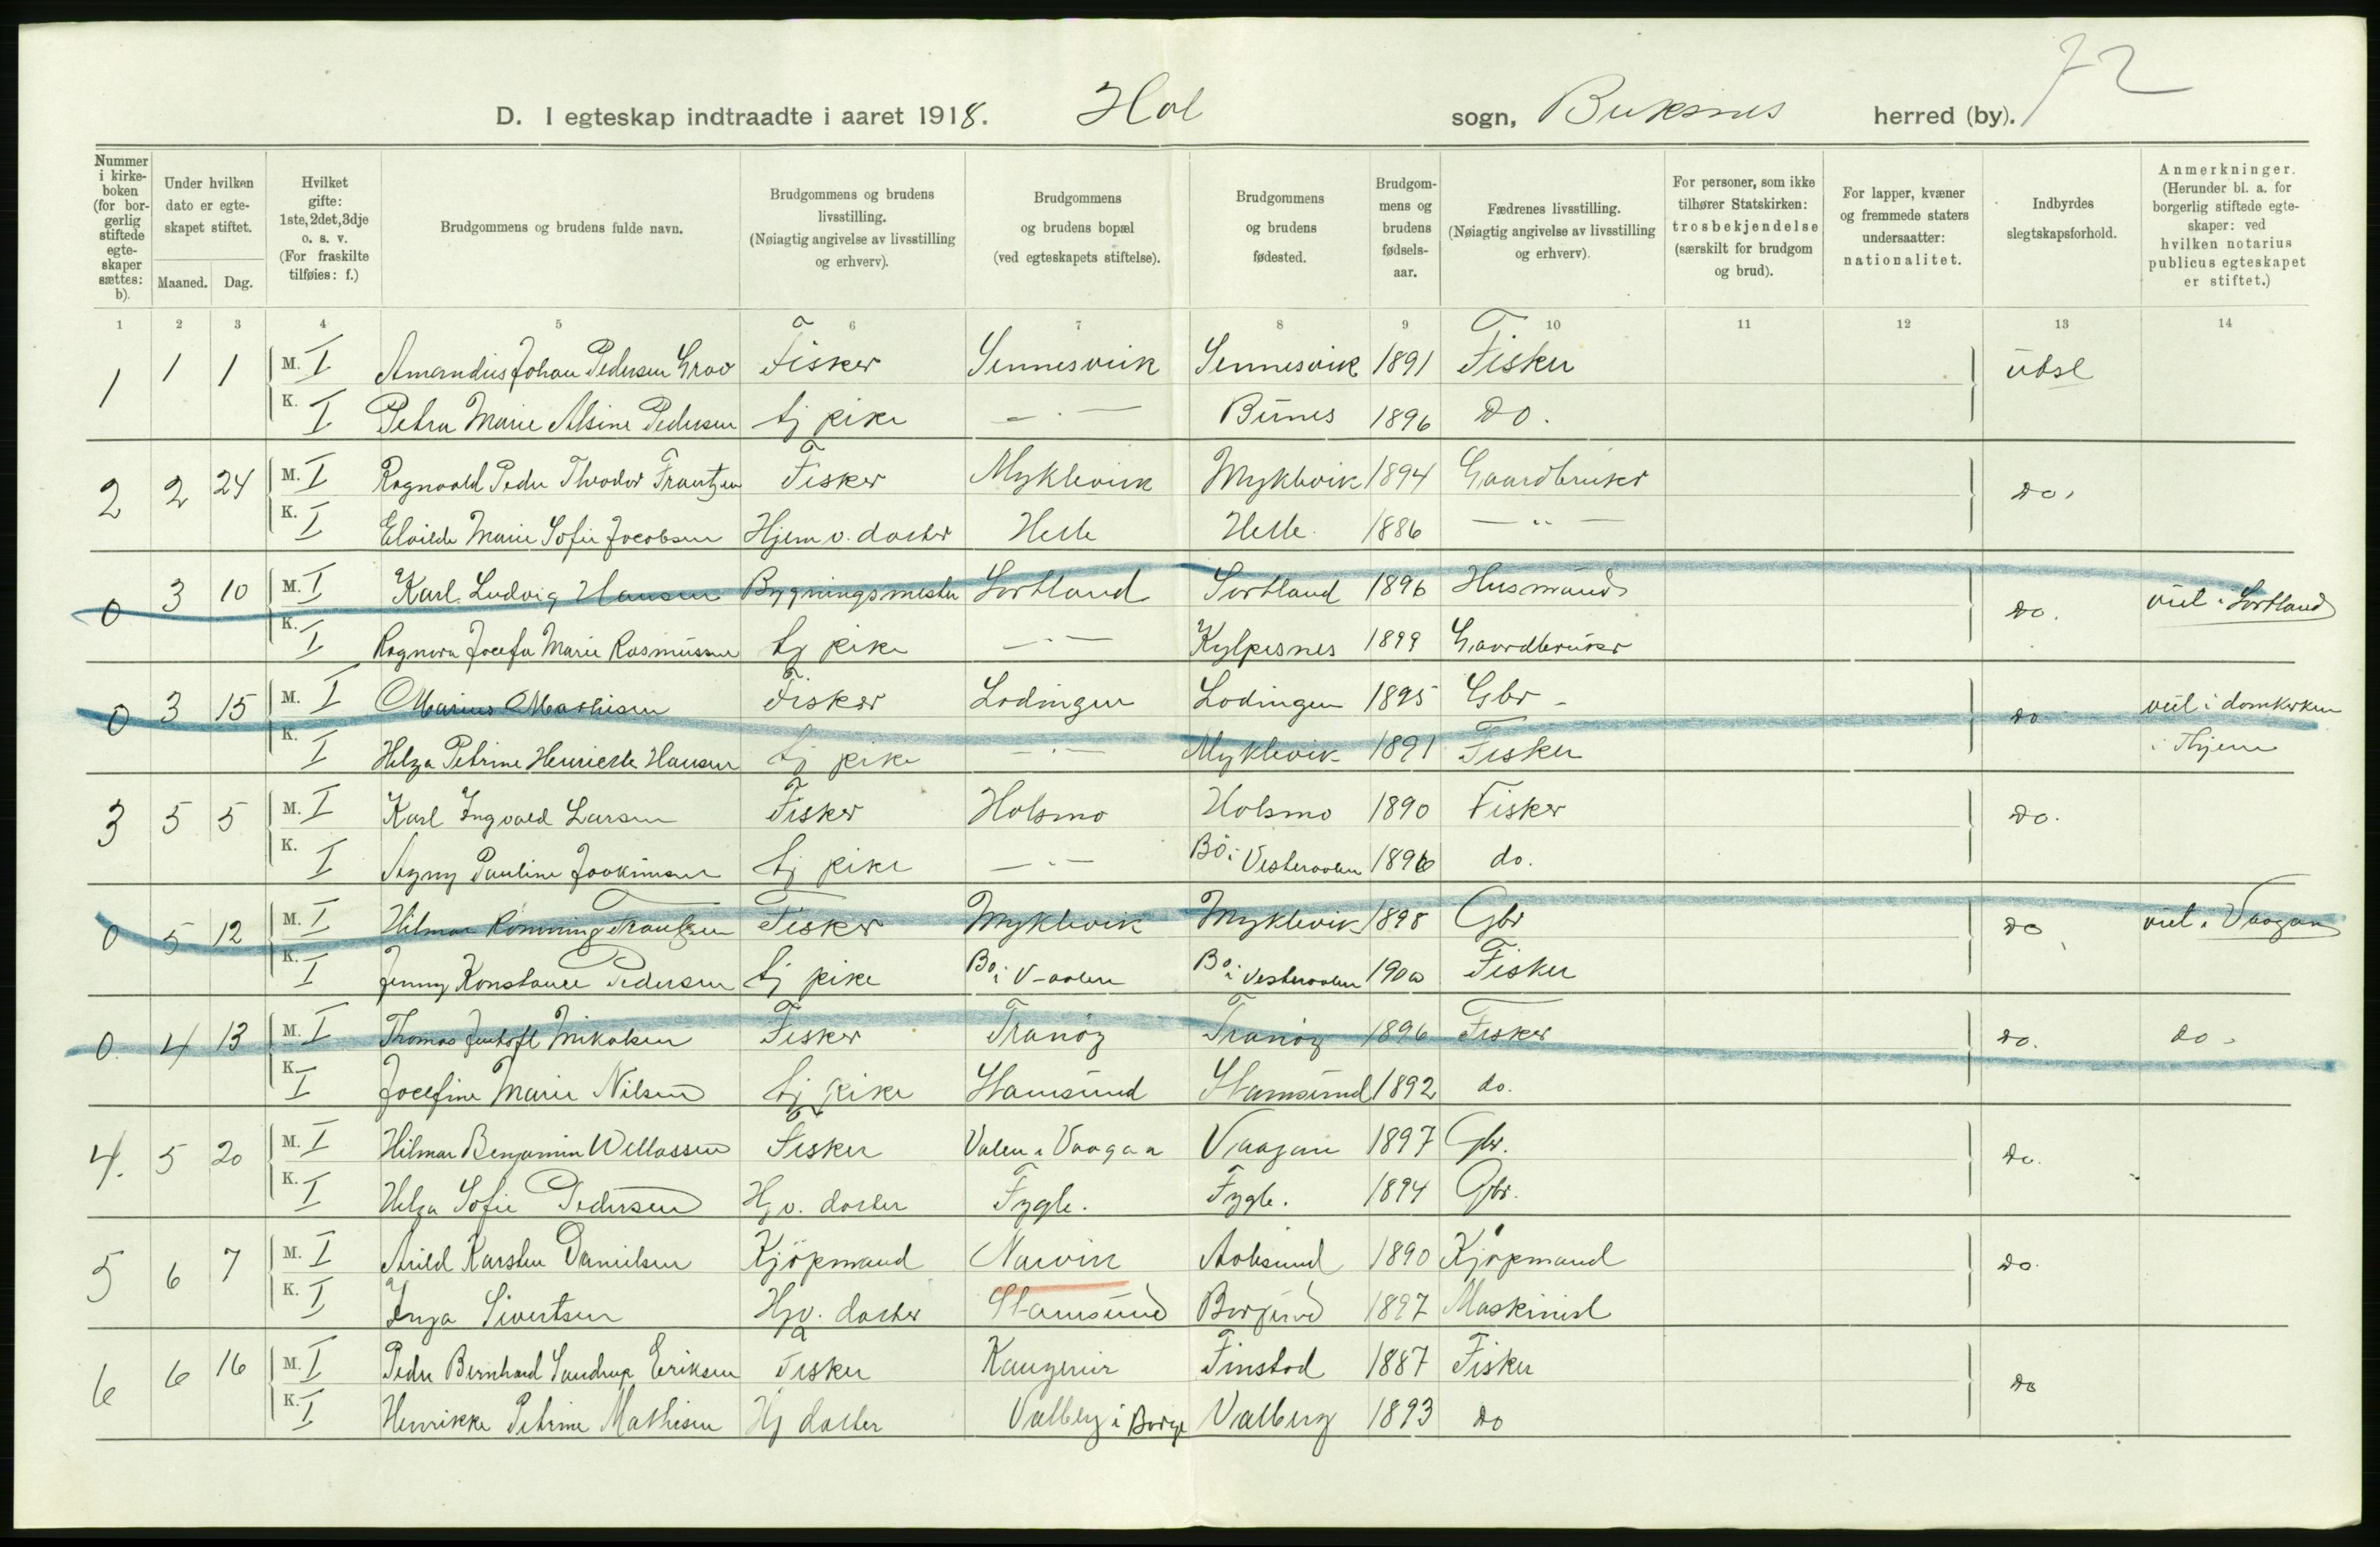 72
D. I egteskap indtraadte i aaret 1918. Hol sogn, Buksnes herred (by).
Nummer i kirke-boken (for bor-gerlig stiftede egte-skaper sættes: b).
Under hvilken dato er egte-skapet stiftet.
Maaned. Dag.
Hvilket gifte: 1ste, 2det, 3dje o. s. v. (For fraskilte tilføies: f.)
Brudgommens og brudens fulde navn.
Brudgommens og brudens livsstilling. (Nøiagtig angivelse av livsstilling og erhverv).
Brudgommens og brudens bopæl (ved egteskapets stiftelse).
Brudgommens og brudens fødested.
Brudgom-mens og brudens fødsels-aar.
Fædrenes livsstilling. (Nøiagtig angivelse av livsstilling og erhverv).
For personer, som ikke tilhører Statskirken: trosbekjendelse (særskilt for brudgom og brud).
For lapper, kvæner og fremmede staters undersaatter: nationalitet.
Indbyrdes slegtskapsforhold.
Anmerkninger. (Herunder bl. a. for borgerlig stiftede egte-skaper: ved hvilken notarius publicus egteskapet er stiftet.)
1 2 3 4 5 6 7 8 9 10 11 12 13 14
1 1 1 M. I Amandus Johan Pedersen Grav Fisker Sennesvik Sennesvik 1891 Fisker ubsl
K. I Petra Marie Alsine Pedersen tj pike —"— Bunes 1896 do.
2 2 24 M. I Ragnvald Peder Theodor Frantzen Fisker Myklevik Myklevik 1894 Gaardbruker do.
K. I Elvilde Marie Sofie Jacobsen Hjem v. datter Helle Helle. 1886 —"—
0 3 10 M. I Karl Ludvig Hansen Bygningsmester Sortland Sortland 1896 Husmand do. viet i Sortland
K. I Ragnara Josefa Marie Rasmussen tj pike —"— Kylpesnes 1899 Gaardbruker
0 3 15 M. I Marius Mathisen Fisker Lødingen Lødingen 1895 Gbr do viet i domkirken
K. I Helga Petrine Henriette Hansen tj pike —"— Myklevik 1891 Fisker i Thjem
3 5 5 M. I Karl Ingvald Larsen Fisker Holsmo Holsmo 1890 Fisker do.
K. I Agny Pauline Joakimsen tj pike —"— Bø i Vesteraalen 1896 do.
0 5 12 M. I Hilmar Rønning Frantzen Fisker Myklevik Myklevik 1898 Gbr do viet i Vaagan
K. I Jenny Konstanse Pedersen tj pike Bø i V-aalen Bø i Vesteraalen 1900 Fisker
0. 4 13 M. I Thomas Jentoft Mikalsen Fisker Tranøy Tranøy 1896 Fisker do. do.
K. I Josefine Marie Nilsen tj pike Stamsund Stamsund 1892 do.
4. 5 20 M. I Hilmar Benjamin Willassen Fisker Valen i Vaagan Vaagan 1897 Gbr. do.
K. I Helga Sofie Pedersen Hj v. datter Fygle. Fygle. 1894 Gbr.
5 6 7 M. I Arild Karsten Danielsen Kjöpmand Narvik Aalesund 1890 Kjöpmand do.
K. I Inga Sivertsen Hjv. datter Stamsund Borgund 1897 Maskinist
6 6 16 M. I Peder Bernhard Sandrup Eriksen Fisker Kangerur Finstad 1887 Fisker do
K. I Henrikke Petrine Mathisen Hj datter Valberg i Borge Valberg 1893 do